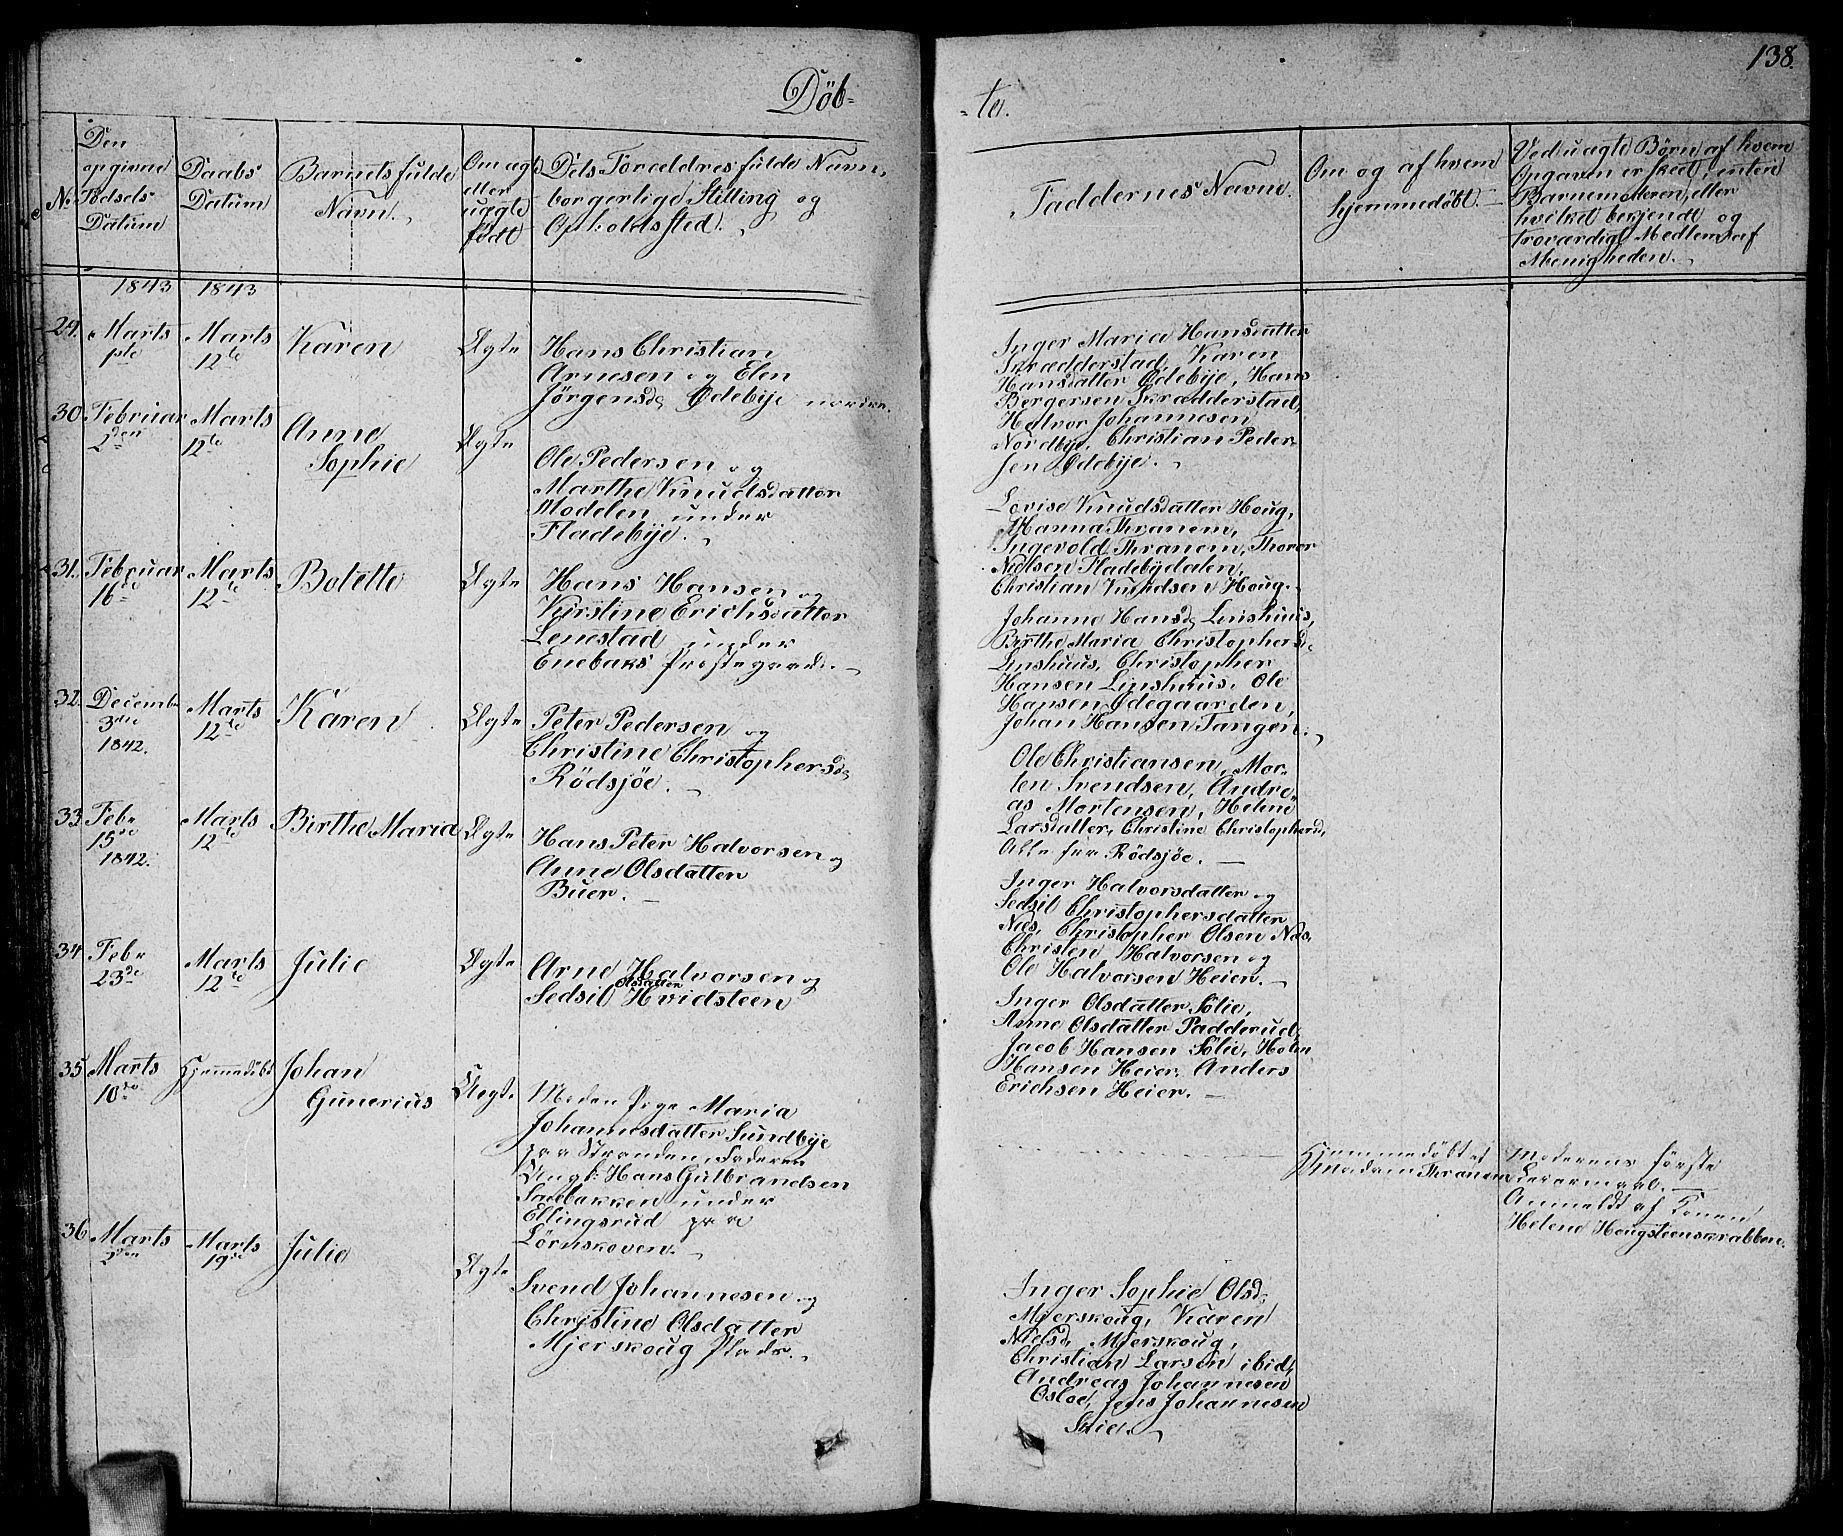 138.
Döb-
-te.
No.
Den
opgivne
Fødsels
Datum
Daabs
Datum
Barnets fulde
Navn.
Om ægte
eller
uægte
født
Dets Forældres fulde Navn,
borgerlige Stilling og
Opholdssted.
Faddernes Navne.
Om og af hvem
hjemmedöbt.
Ved uægte Børn af hvem
Opgaven er skedt, enten
Barnemoderen, eller
hvilket bekjendt og
troværdigt Medlem af
Menigheden.
1843 1843
29. Marts 1ste
Marts 12te
Karen
Ægte
Hans Christian
Arnesen og Elen
Jørgensd. Ødebÿe nordre.
Inger Maria Hansdatter
Skrædderstad, Karen
Hansdatter Ødebÿe, Hans
Bergersen Skrædderstad,
Halvor Johannesen
Nordbÿe, Christian Peder-
sen Ødebÿe.
30. Februar 2den
Marts 12te
Anne
Sophie
Ægte
Ole Pedersen og
Marthe Knudsdatter
Modelen under
Fladebÿe.
Lovise Knudsdatter Houg,
Hanna Thranem,
Ingevold Thranem, Thorer
Nielsen Fladebÿdalen,
Christian Knudsen Houg.
31. Februar 16de
Marts 12te
Bolette
Ægte
Hans Hansen og
Kirstine Erichsdatter
Lenestad under
Enebaks Prestegaard.
Johanne Hansd. Linshuus,
Birthe Maria Christophersd.
Linshuus, Christopher
Hansen Linshuus, Ole
Hansen Ødegaarden,
Johan Hansen Tangen.
32. Decembr 3die 1842.
Marts 12te
Karen
Ægte
Peter Pedersen og
Christine Christophersd.
Rödsjöe.
Ole Christiansen, Mor-
ten Svendsen, Andre-
as Mortensen, Helene
Larsdatter, Christine Christophersd,
Alle fra Rödsjöe.
33. Febr 15de 1842.
Marts 12te
Birthe Maria
Ægte
Hans Peter Halvorsen og
Anne Olsdatter
Buer.
Inger Halvorsdatter og
Sedsil Christophersdatter
Næs, Christopher Olsen Næs,
Christen Halvorsen og
Ole Halvorsen Heier.
34. Febr 23de
Marts 12te
Julie
Ægte
Arne Halvorsen og
Sedsil Olsdatter Hvidsteen
Inger Olsdatter Sölie,
Anne Olsdatter Padderud,
Jacob Hansen Sölie,
Hansen Heier, Anders
Erichsen Heier.
35. Marts 10de
Hjemmedöbt
Johan
Gunerius
Uegte
Moden Pige Maria
Johannesdatter Sundbÿe
paa Stranden, Faderen
Ungk: Hans Gulbrandsen
Sagbakken under
Ellingsrud paa
Lörnskoven.
Hjemmedöbt af
Madam Thranem
Moderens første
Leiermaal.
Anmeldt af Konen
Helene Hougsteenskrabben.
36. Marts 2den
Marts 19de
Julie
Ægte
Svend Johannesen og
Christine Olsdatter
Mjerskoug Plads.
Inger Sophie Olsd.
Mjerskoug, Karen
Nielsd. Mjerskoug,
Christian Larsen ibid,
Andreas Johannesen
Osloe, Jens Johannesen
Solie.